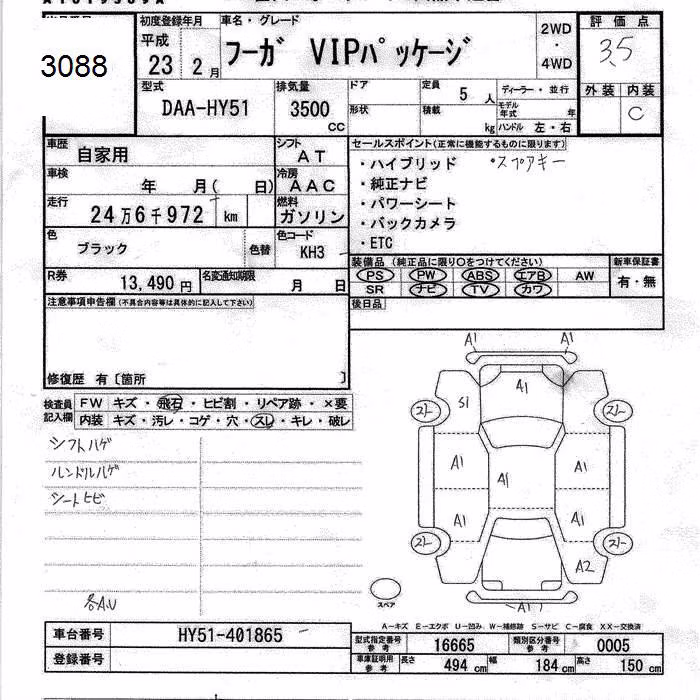 3088
初度登録年月 車名・グレード 2WD ・ 4WD 評価点
平成 23 2月 フーガ VIPパッケージ 3.5
型式 排気量 ドア 定員 5 人 ディーラー・並行 外装 内装
DAA-HY51 3500 CC 形状 積載 kg モデル年式 年 ハンドル 左・右 C
車歴 自家用 シフト AT セールスポイント(正常に機能するものに限ります)
車検 年 月( 日) 冷房 AAC ・ハイブリッド ・スペアキー
・純正ナビ
走行 24万6千972 km 燃料 ガソリン ・パワーシート
色 ブラック 色替 色コード KH3 ・バックカメラ
・ETC
R券 13,490 円 名変通知期限 月 日 装備品(純正品に限り○をつけてください) 新車保証書
PS PW ABS エアB AW 有・無
SR ナビ TV カワ
注意事項申告欄(不具合内容等は具体的に記入して下さい) 後日品
修復歴 有〔箇所 〕
検査員記入欄 FW キズ・飛石・ヒビ割・リペア跡・×要
内装 キズ・汚レ・コゲ・穴・スレ・キレ・破レ
シフトハゲ
ハンドルハゲ
シートヒビ
各A.U
A1 A1
A1
スリ- S1 スリ-
A1 A1 A1
A1 A1
スリ- スリ-
A2
スペア A1
A-キズ E-エクボ U-凹み W-補修跡 S-サビ C-腐食 XX-交換済
車台番号 HY51-401865
登録番号
型式指定番号参考 16665 類別区分番号参考 0005
車庫証明用参考 長さ 494 cm 幅 184 cm 高さ 150 cm